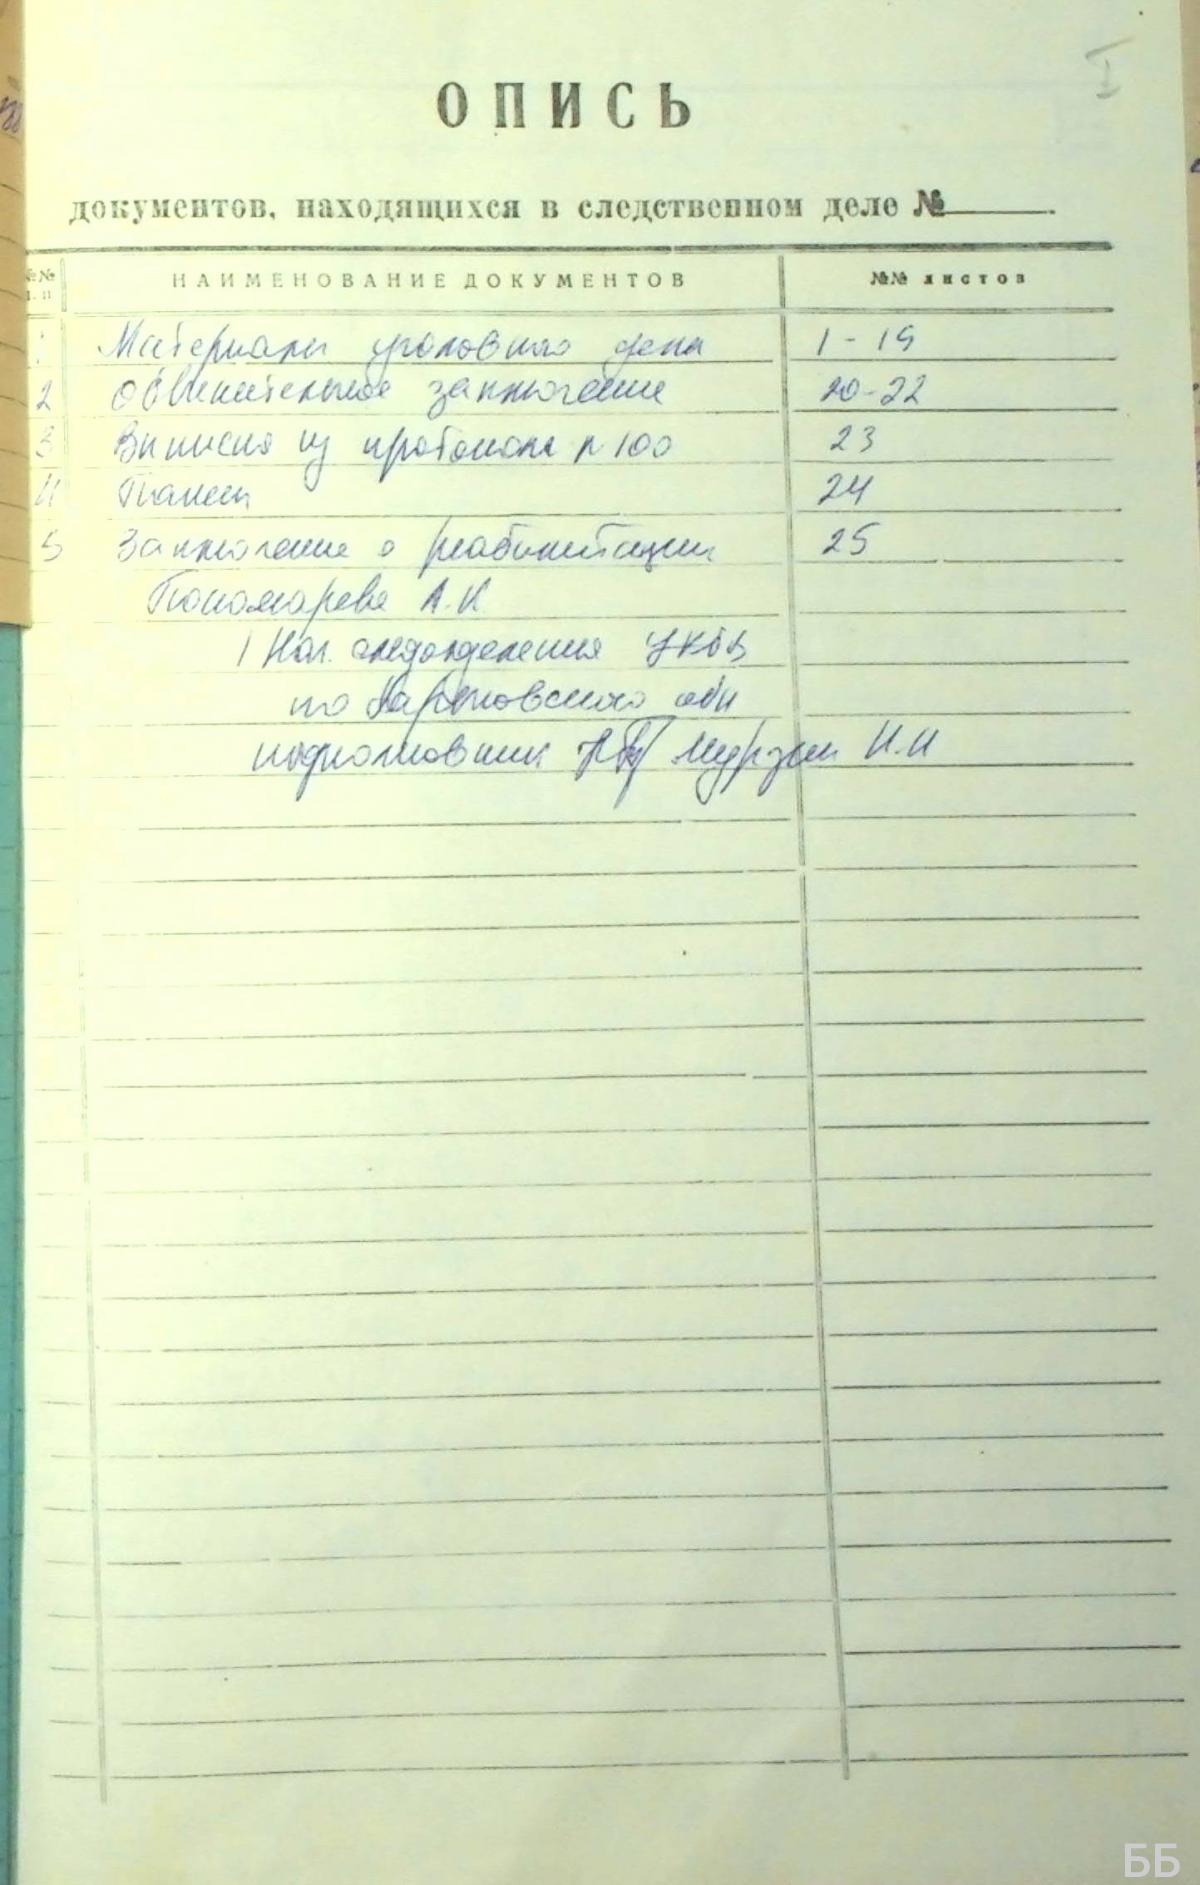 I
ОПИСЬ
документов, находящихся в следственном деле №
№№ п. п НАИМЕНОВАНИЕ ДОКУМЕНТОВ №№ листов
1 Материалы уголовного дела 1-19
2 Обвинительное заключение 20-22
3 Выписка из протокола 100 23
4 24
5 Заключение о реабилитации 25
Пономарева А.К
Нач. следотделения УКГБ
по Харьковской обл
подполковник Мурзин И.И
ББ